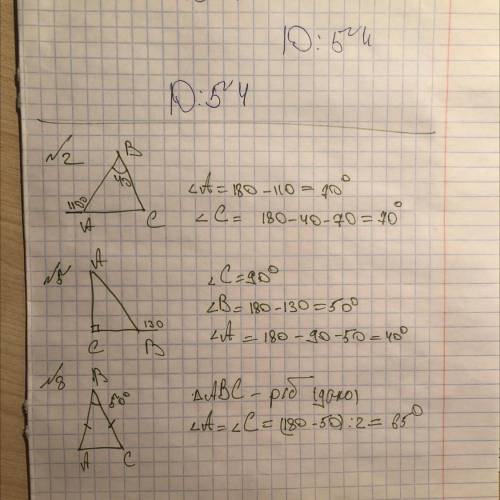 Ю: 5~4
Ю: 5~4
№2
B
40
110°
A
C
∠A = 180 - 110 = 70°
∠C = 180 - 40 - 70 = 70°
№5
A
C
B
130
∠C = 90°
∠B = 180 - 130 = 50°
∠A = 180 - 90 - 50 = 40°
№8
B
50°
A
C
△ABC - р/б (дано)
∠A = ∠C = (180 - 50) : 2 = 65°